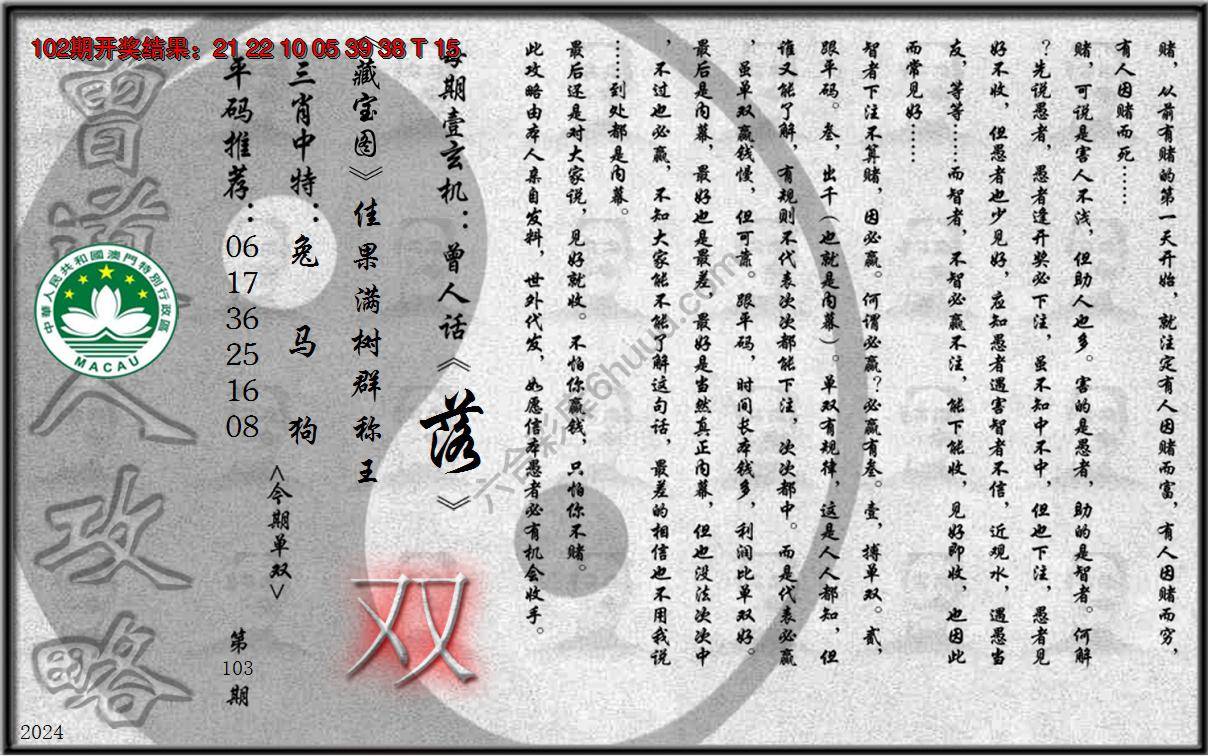 102期开奖结果：21 22 10 05 39 38 T 15
赌，从前有赌的第一天开始，就注定有人因赌而富，有人因赌而穷，
有人因赌而死……
赌，可说是害人不浅，但助人也多。害的是愚者，助的是智者。何解
？先说愚者，愚者逢开奖必下注，虽不知中不中，但也下注，愚者见
好不收，但愚者也少见好，应知愚者遇害智者不信，近观水，遇愚当
友，等等……而智者，不智必赢不注，能下能收，见好即收，也因此
而常见好……
智者下注不算赌，因必赢。何谓必赢？必赢有叁。壹，搏单双。贰，
跟平码。叁，出千（也就是内幕）。单双有规律，这是人人都知，但
谁又能了解，有规则不代表次次都能下注，次次都中。而是代表必赢
，虽单双赢钱慢，但可靠。跟平码，时间长本钱多，利润比单双好。
最后是内幕，最好也是最差，最好是当然真正内幕，但也没法次次中
，不过也必赢，不知大家能不能了解这句话，最差的相信也不用我说
……到处都是内幕。
最后还是对大家说，见好就收。不怕你赢钱，只怕你不赌。
此攻略由本人亲自发料，世外代发，如愿信本愚者必有机会收手。
每期壹玄机：曾人话《落》
《藏宝图》佳果满树群称王
双
三肖中特：兔 马 狗
<今期单双>
平码推荐：
06
17
36
25
16
08
第
103
期
曾道人攻略
中華人民共和國澳門特別行政區
MACAU
六合彩库6huu.com
2024